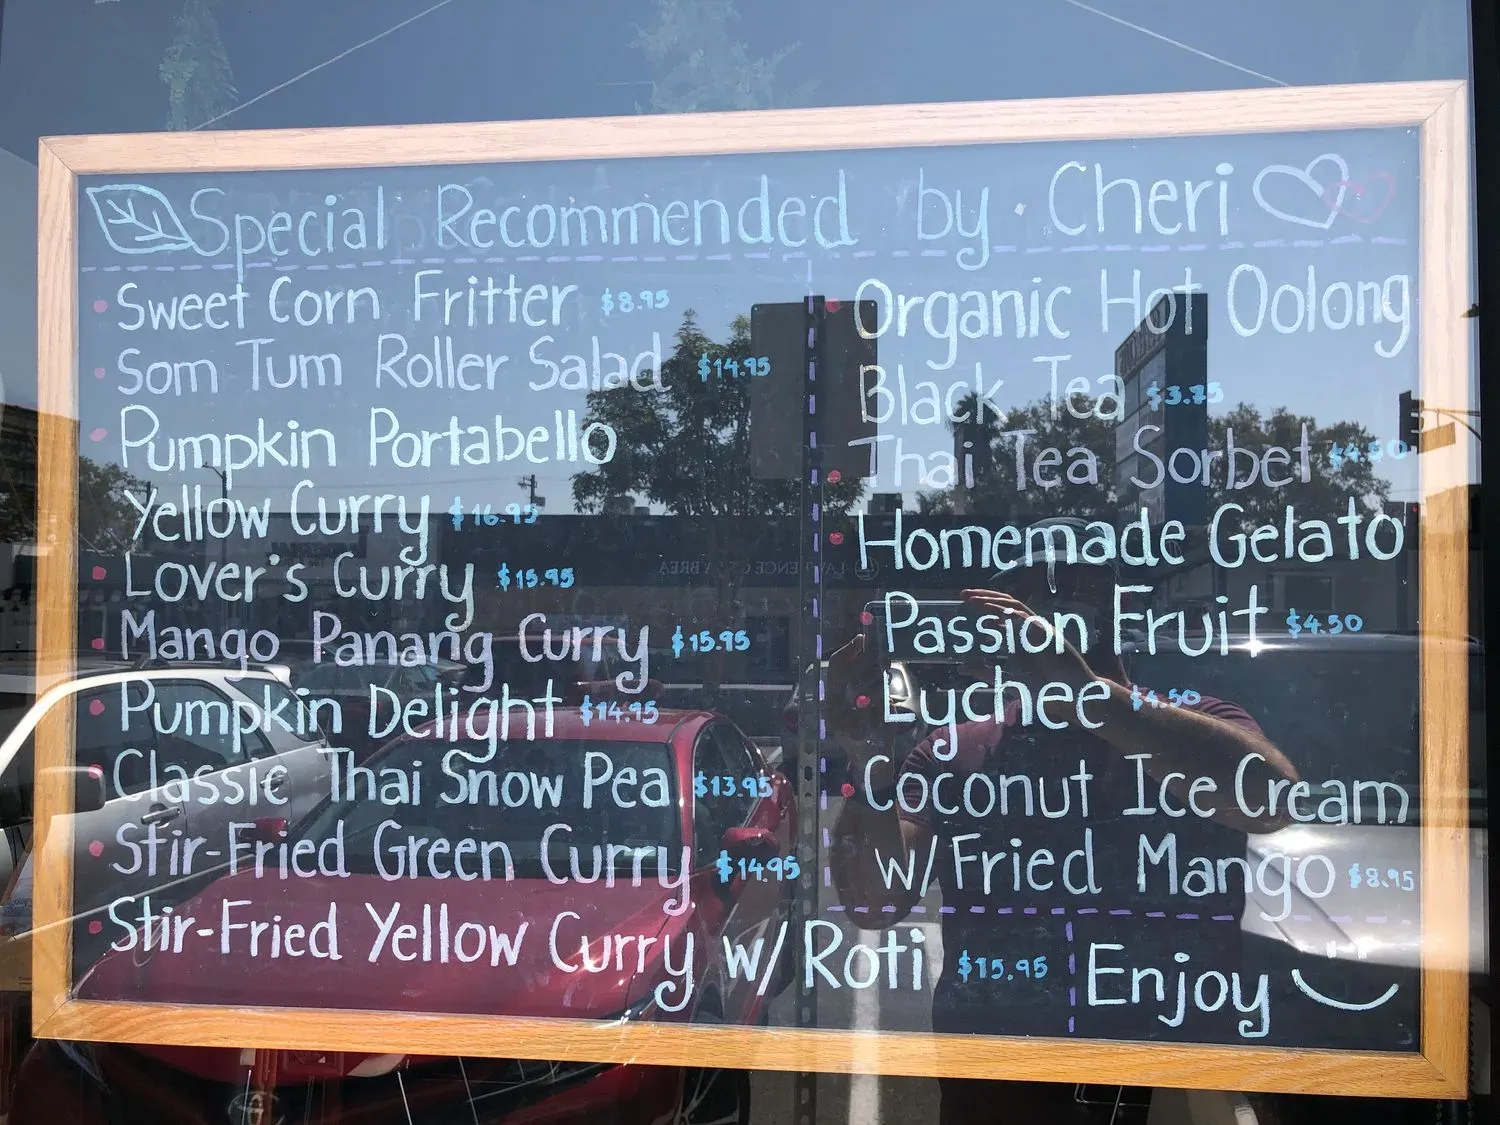 Special Recommended by Cheri
Sweet Corn Fritter $8.95
Som Tum Roller Salad $14.95
Pumpkin Portabello
Yellow Curry $16.95
Lover's Curry $15.95
Mango Panang Curry $15.95
Pumpkin Delight $14.95
Classic Thai Snow Pea $13.95
Stir-Fried Green Curry $14.95
Stir-Fried Yellow Curry w/ Roti $15.95
Organic Hot Oolong
Black Tea $3.75
Thai Tea Sorbet $4.50
Homemade Gelato
Passion Fruit $4.50
Lychee $4.50
Coconut Ice Cream
w/ Fried Mango $8.95
Enjoy